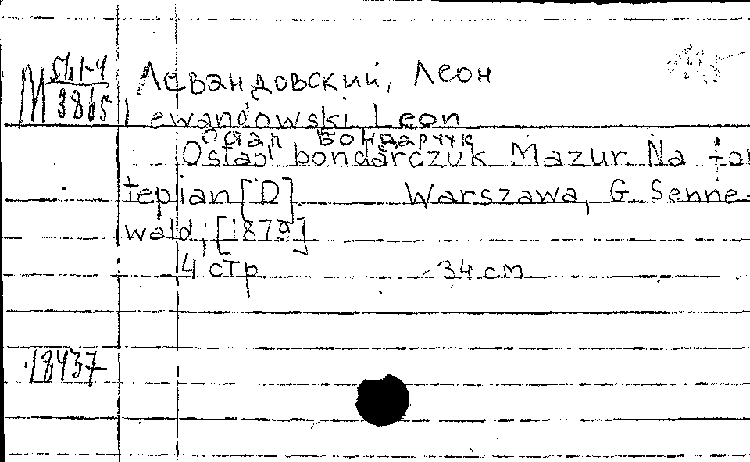 М 51,1-4
3865
Левандовский, Леон
Lewandowski Leon
Остап Бондарчук
Ostap bondarczuk Mazur. Na for
tepian [D] Warszawa, G. Senne-
wald, [1879]
4 стр 34 см
18437